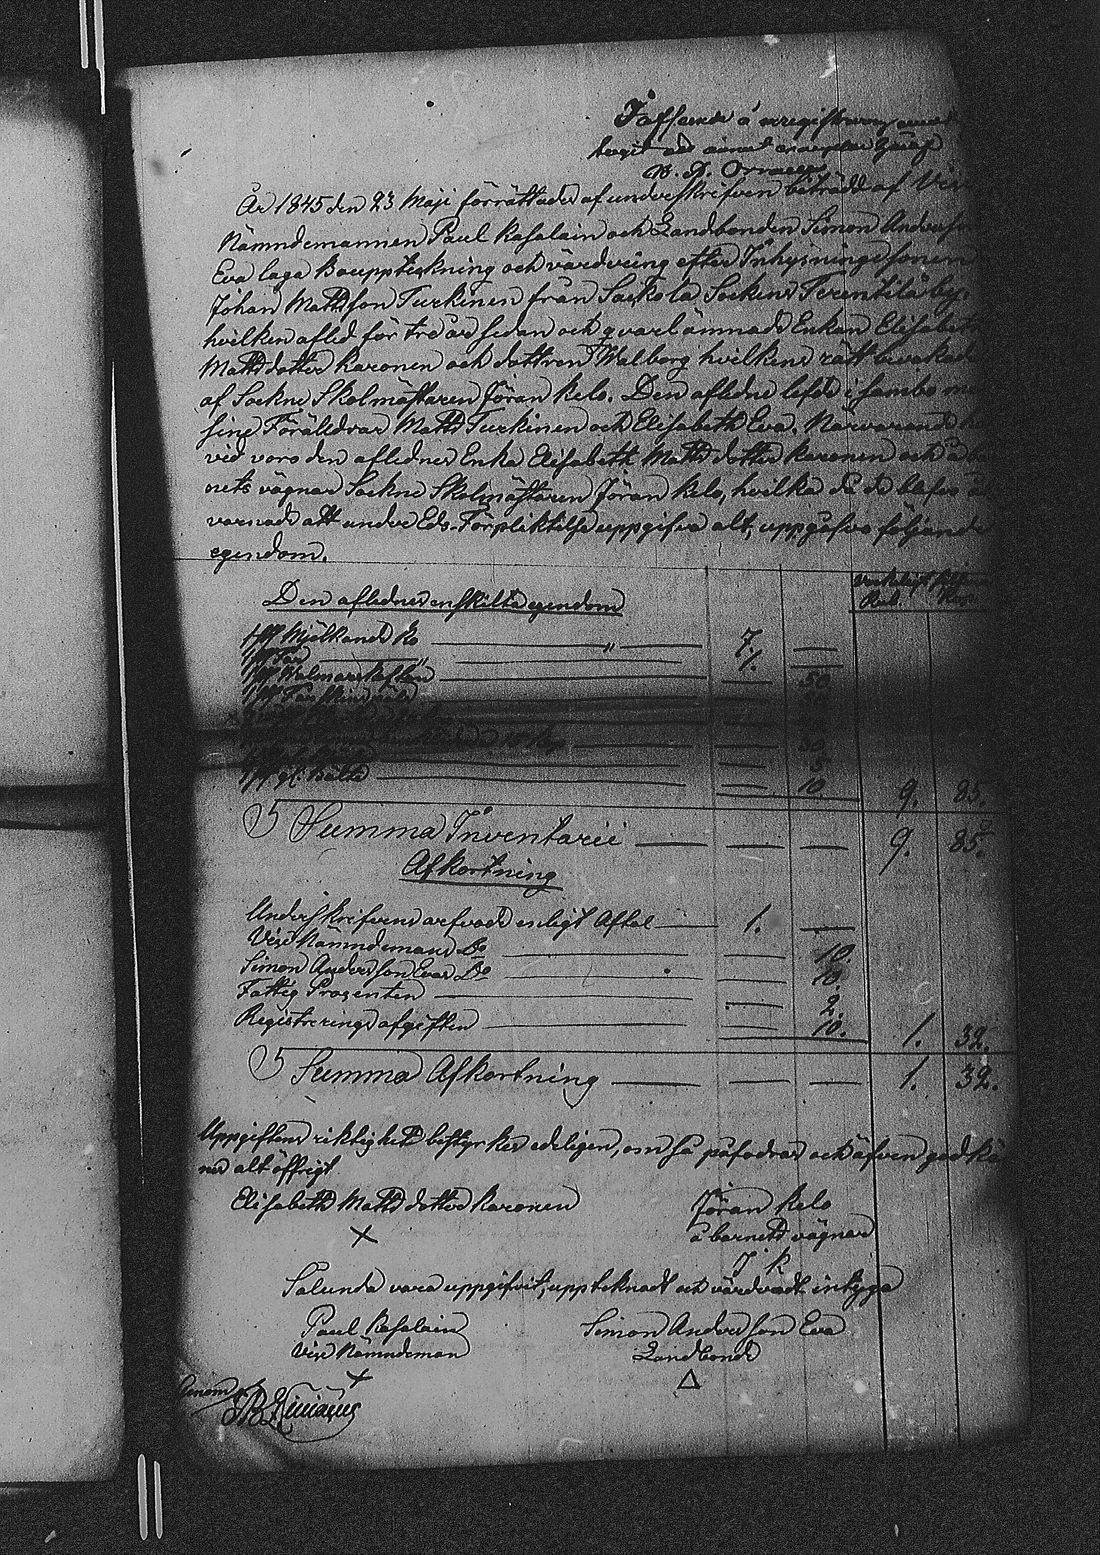 År 1845 den 23 Maji förrättades af underskrifven biträdd af Vice
Nämndemannen Paul Kasalain och Landbonden Simon Andersson
Eva laga Bouppteckning och värdering efter Inhysningssonen
Johan Mattsson Turkinen från Sackola Sockens Terentilä by,
hvilken afled för tre år sedan och qvarlämnade Enkan Elisabeth
Mattsdotter Karonen och dottren Walborg hvilkens rätt bevakades
af Sockne Skolmästaren Jöran Kelo. Den aflednes lefde i sambo med
sine Föräldrar Matts Turkinen och Elisabeth Eva. Närvarande här
vid voro den aflednes Enka Elisabeth Mattsdotter Karonen och å bar
nets vägnar Sockne Skolmästaren Jöran Kelo, hvilka då de blefvo
varnade att under Eds-Förpliktelse uppgifva alt, uppgåfvo följande
egendom.
Den aflednes enskilta egendom
1 st Mjölkande Ko — " — 7. —
1 st — " — 1. —
1 st — 50
30
5
1 st gl. Bälte — 10 9. 85.
Summa Inventarii — — — 9. 85.
Afkortning
Underskrifvens arfvode enligt Aftal — 1. —
Vice Nämndemans Do — — 10.
Simon Andersson Evas Do — — 10.
Fattig Procenten — — 2.
Registreringsafgiften — — 10. 1. 32.
Summa Afkortning — — — 1. 32.
Uppgiftens riktighet bestyrkes edeligen, om så påfodras och äfven godkän
nes alt öffrigt
Elisabeth Mattsdotter Karonen Jöran Kelo
å barnets vägnar
J K
Sålunda vara uppgifvit, upptecknadt och värderadt intyga
Paul Kasalain Simon Andersson Eva
Vice Nämndeman Landbonde
Genom